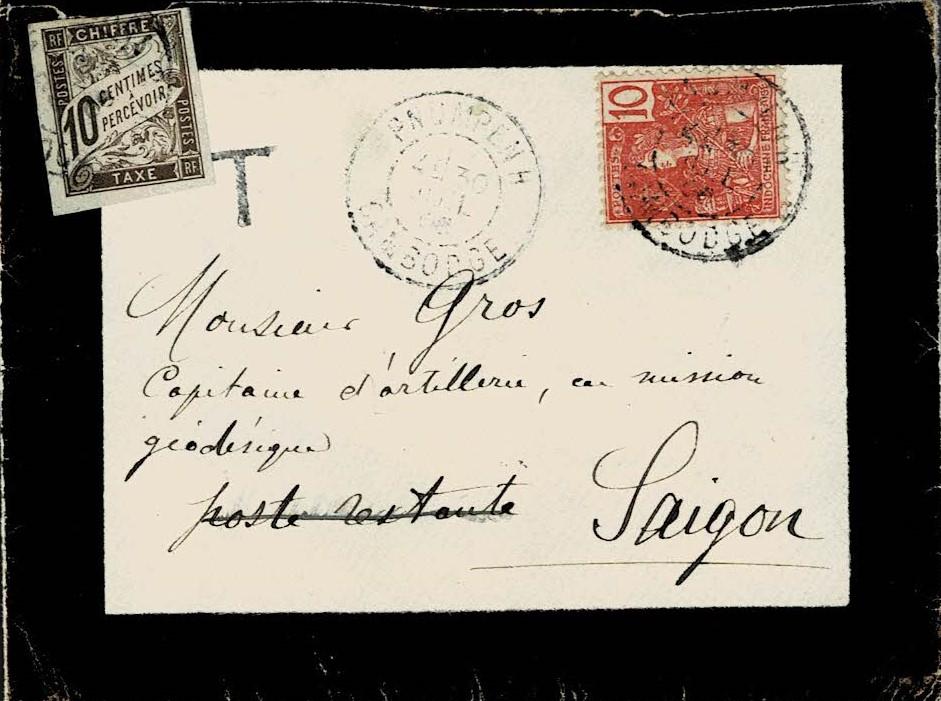 RF CHIFFRE
POSTES
10 CENTIMES
À
PERCEVOIR
POSTES
TAXE RF
T
PNOMPENH
30
CAMBODGE
10
POSTES
INDOCHINE FRANÇAISE
CAMBODGE
Monsieur Gros
Capitaine d'artillerie, en mission
géodésique
poste restante
Saigon